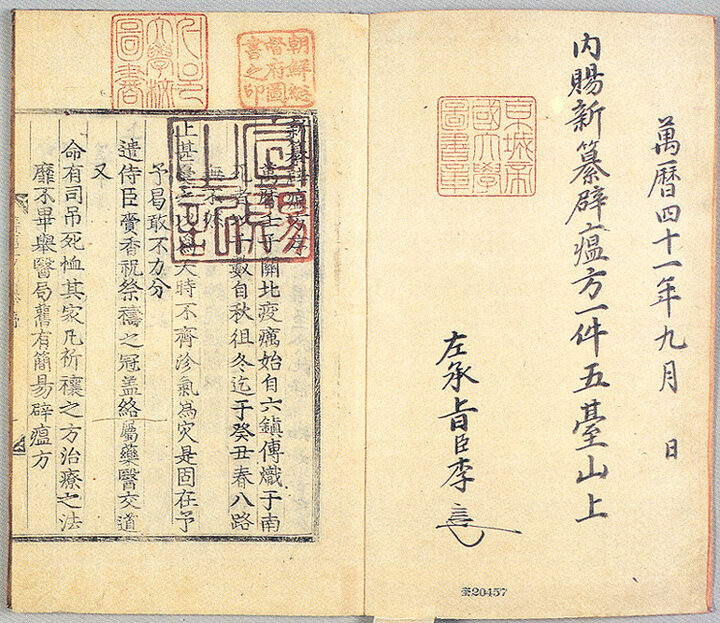 萬曆四十一年九月 日
內賜新纂辟瘟方一件五臺山上
左承旨臣李
京城帝
國大學
圖書章
奎20457
朝鮮總
督府圖
書之印
大學校
圖書
新纂辟瘟方序
萬曆壬子關北疫癘始自六鎮傳熾于南
死者以千數自秋徂冬迄于癸丑春八路
無不然
上甚憂之以爲天時不齊沴氣爲灾是固在予
予曷敢不力分
遣侍臣賫香祝祭禱之冠盖絡屬藥醫交道
又
命有司吊死恤其家凡祈禳之方治療之法
靡不畢舉醫局舊有簡易辟瘟方